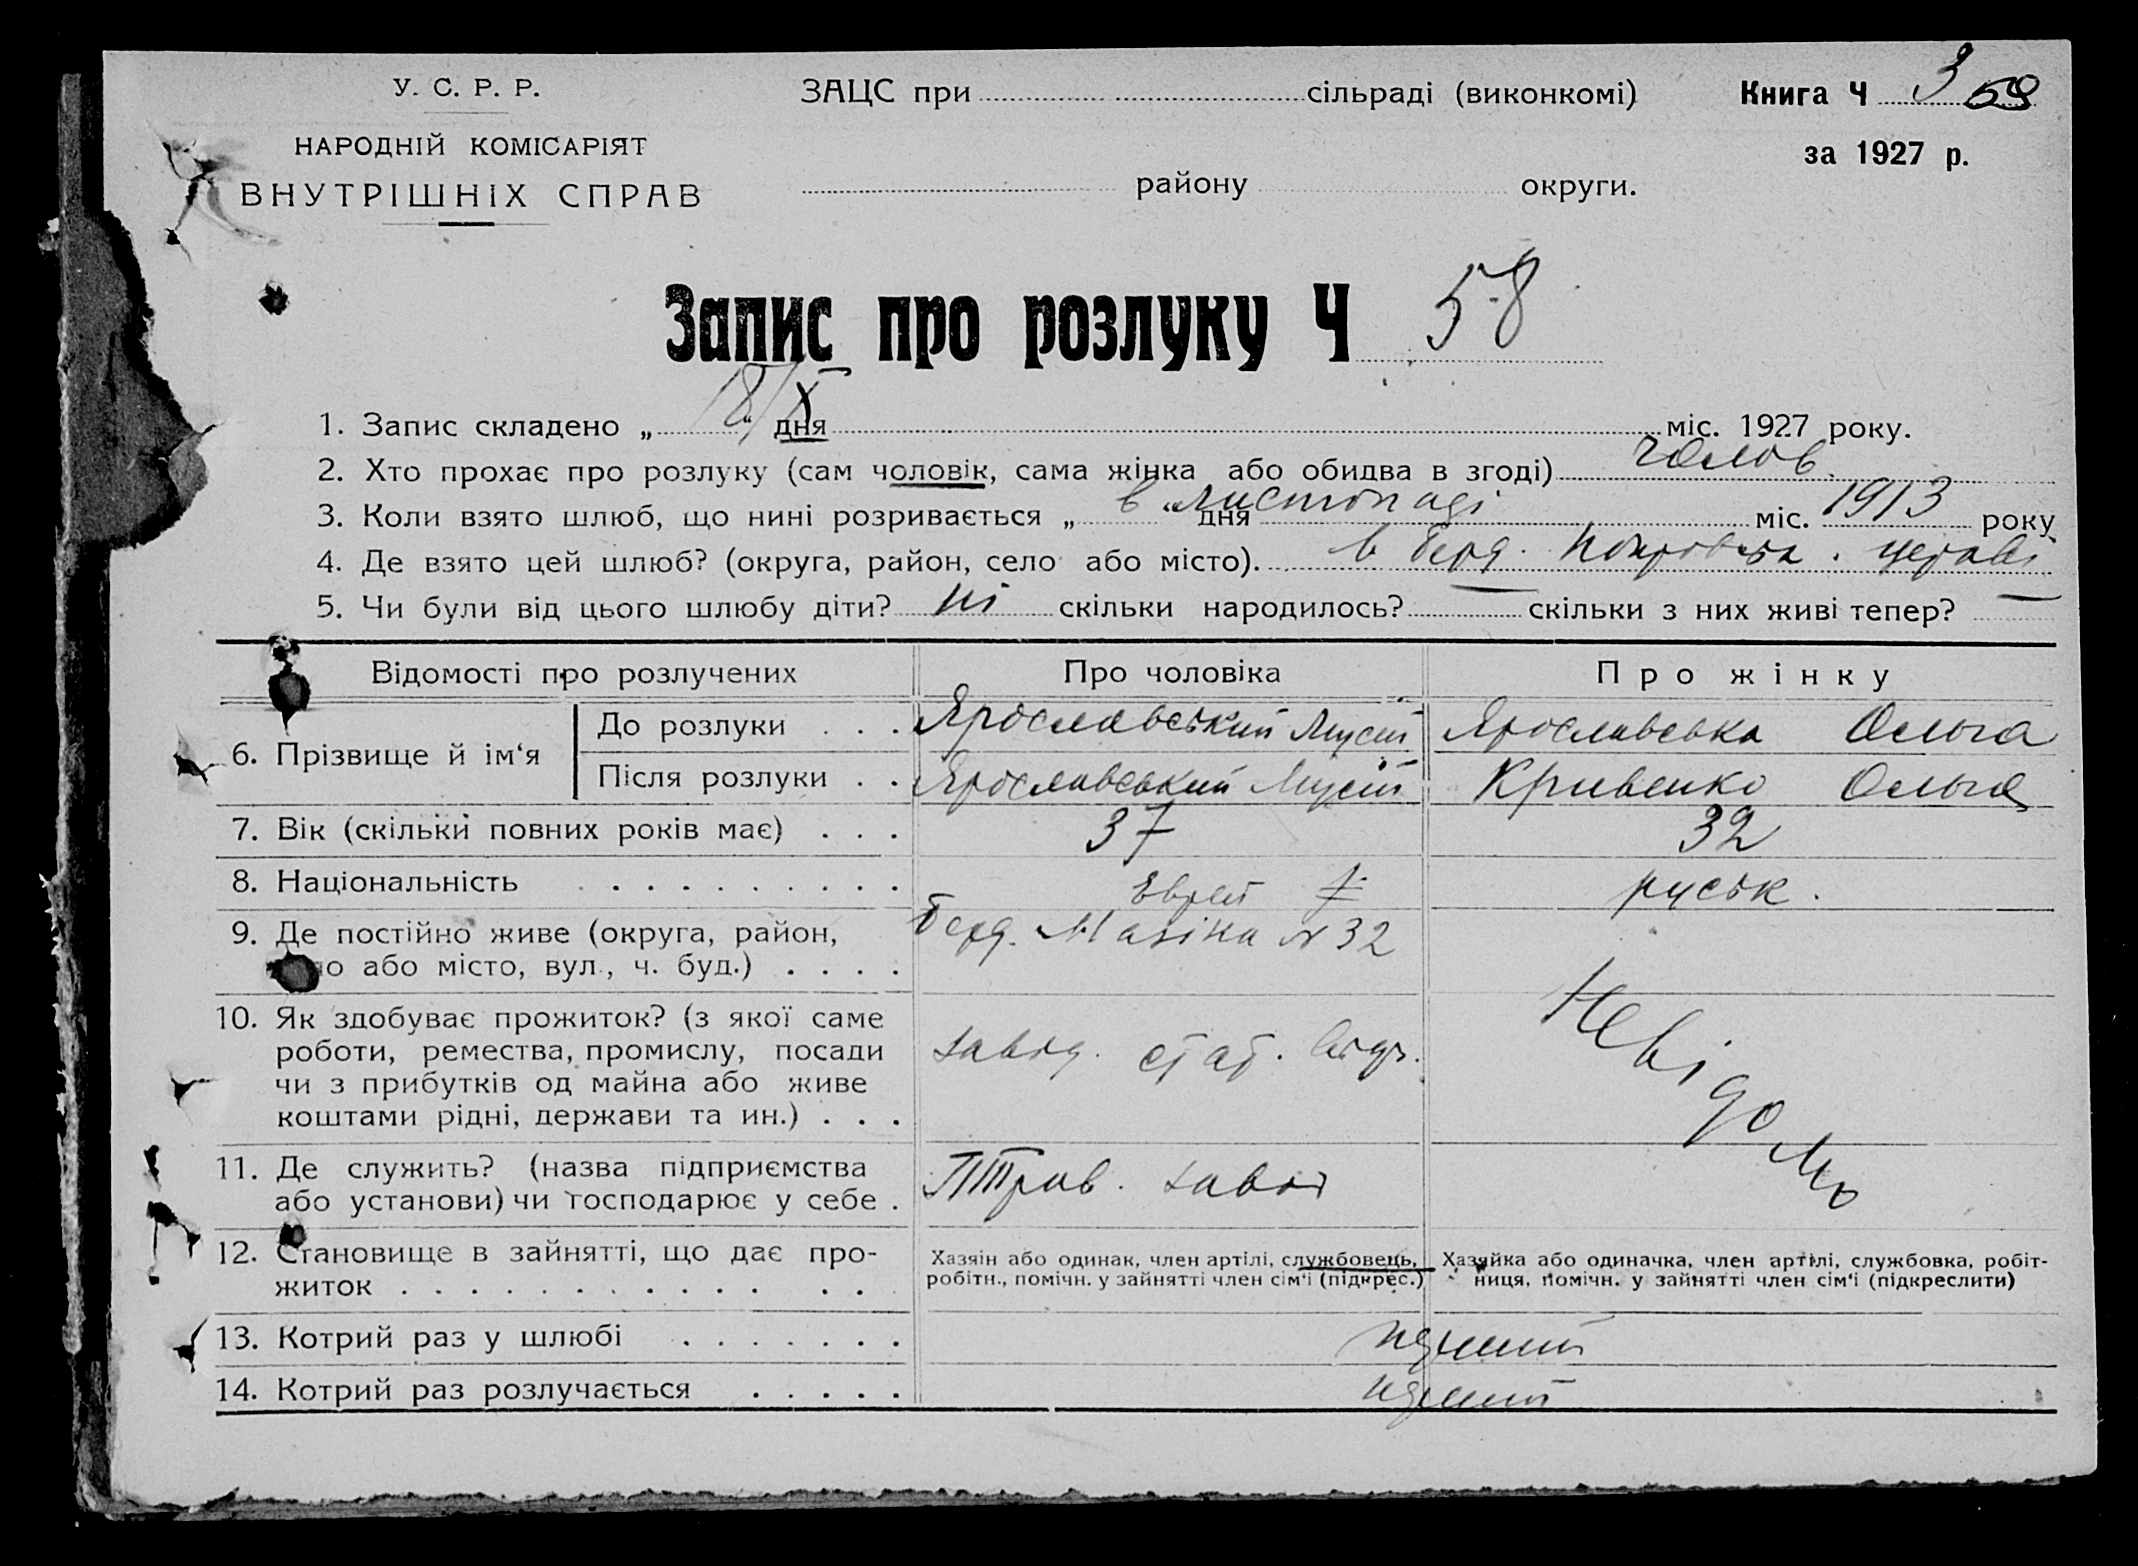 У. С. Р. Р.
НАРОДНІЙ КОМІСАРІЯТ
ВНУТРІШНІХ СПРАВ
ЗАЦС при сільраді (виконкомі)
району округи.
Книга Ч 3 59
за 1927 р.
Запис про розлуку Ч 58
1. Запис складено „18/X“ дня міс. 1927 року.
2. Хто прохає про розлуку (сам чоловік, сама жінка або обидва в згоді) чолов.
3. Коли взято шлюб, що нині розривається „ в “ дня листопаді міс. 1913 року
4. Де взято цей шлюб? (округа, район, село або місто). в Берд. церкві
5. Чи були від цього шлюбу діти? ні скільки народилось? — скільки з них живі тепер? —
Відомості про розлучених Про чоловіка Про жінку
6. Прізвище й ім‘я
До розлуки . . . Ярославський Мусій Ярославська Ольга
Після розлуки . . Ярославський Мусій Кривенко Ольга
7. Вік (скільки повних років має) . . . 37 32
8. Національність . . . . . . . . . Еврей руськ.
9. Де постійно живе (округа, район, Берд. Мазіна № 32
о або місто, вул., ч. буд.) . . . .
Невідомо
10. Як здобуває прожиток? (з якої саме
роботи, ремества, промислу, посади завід. стат. відд.
чи з прибутків од майна або живе
коштами рідні, держави та ин.) . . .
11. Де служить? (назва підприємства
або установи) чи господарює у себе . завод
12. Становище в зайнятті, що дає про-
житок . . . . . . . . . . . . .
Хазяїн або одинак, член артілі, службовець,
робітн., помічн. у зайнятті член сім‘ї (підкрес.)
Хазяйка або одиначка, член артілі, службовка, робіт-
ниця, помічн. у зайнятті член сім‘ї (підкреслити)
13. Котрий раз у шлюбі . . . . . . . перший
14. Котрий раз розлучається . . . . . перший